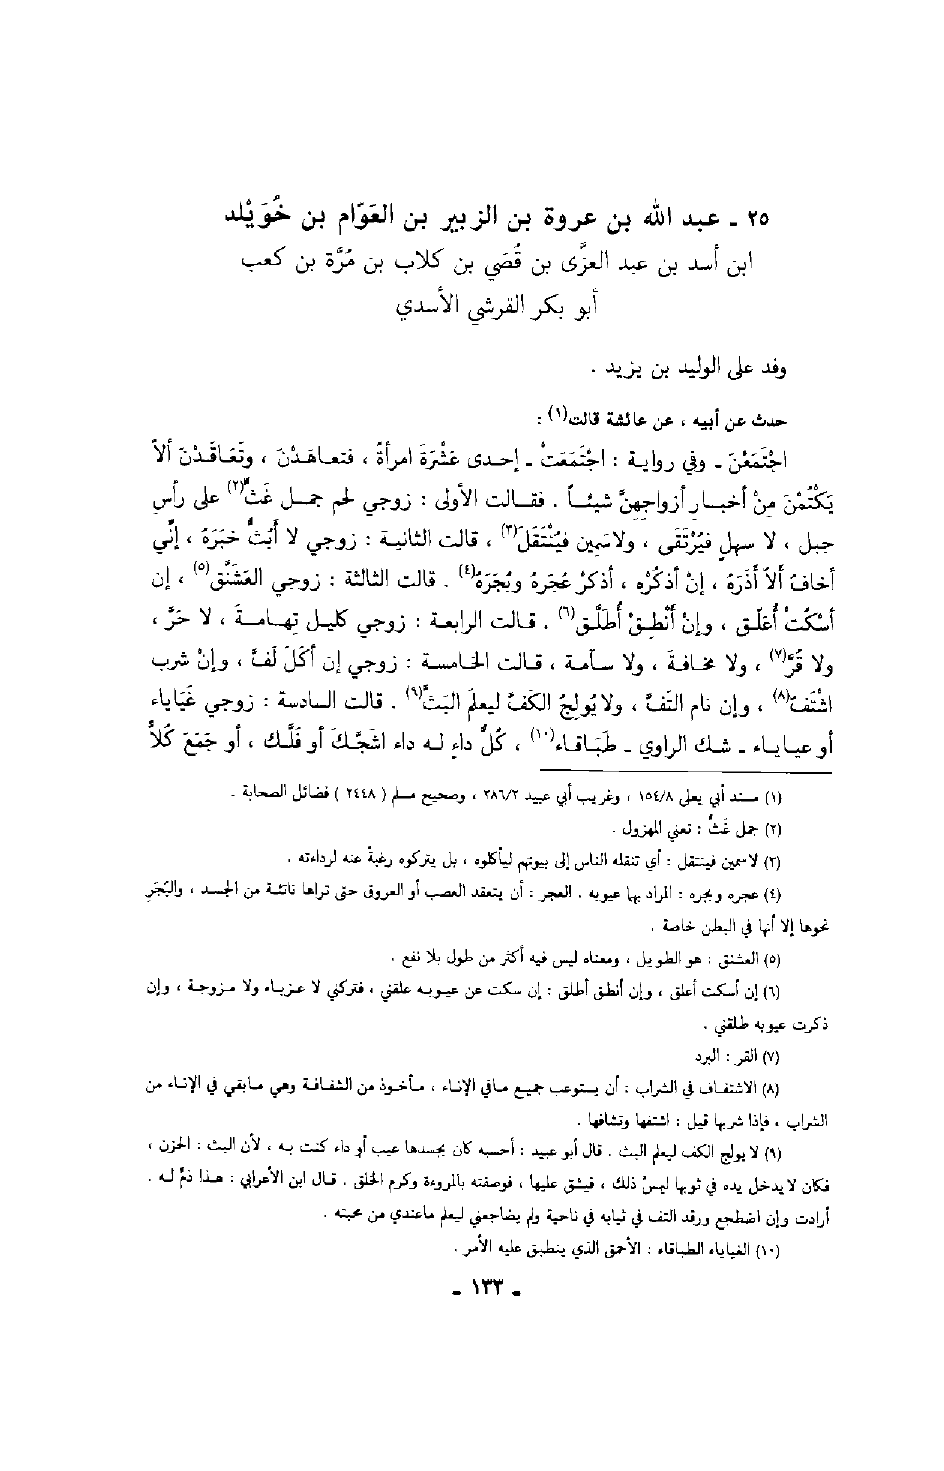 ٢٥ ـ عبد الله بن عروة بن الزبير بن العَوّام بن خُوَيْلد
ابن أسد بن عبد العزَّى بن قُصَي بن كلاب بن مُرَّة بن كعب
أبو بكر القرشي الأسدي
وفد على الوليد بن يزيد .
حدث عن أبيه ، عن عائشة قالت(١) :
اجْتَمَعْنَ ـ وفي رواية : اجتَمَعَتْ ـ إحدى عَشْرَةَ امرأةً ، فتعاهَدْنَ ، وتَعَاقَدْنَ ألاّ
يَكْتُمْنَ مِنْ أخبـار أزواجهنَّ شيئـاً . فقـالت الأولى : زوجي لحم جمـل غَثٌّ(٢) على رأس
جبل ، لا سهلٍ فيُرْتَقَى ، ولاسَمِين فيُنْتَقَلَ(٣) ، قالت الثانية : زوجي لا أَبَثُّ خبَرَهُ ، إنِّي
أخافُ ألاّ أذَرَهُ ، إنْ أذكُرْه ، أذكرْ عُجَرَهُ وبُجَرَهُ(٤) . قالت الثالثة : زوجي العَشَنَّق(٥) ، إن
أسْكُتْ أُعَلَق ، وإنْ أنْطِقْ أُطَلَّق(٦) . قـالت الرابعـة : زوجي كليـل تِهـامـةَ ، لا حَرَّ ،
ولا قُرَّ(٧) ، ولا مخافةَ ، ولا سآمة ، قالت الخامسة : زوجي إن أكَلَ لَفَّ ، وإنْ شرب
اشْتَفَّ(٨) ، وإن نام التَفَّ ، ولايُولِجُ الكَفَّ ليعلمَ البَثَّ(٩) . قالت السادسة : زوجي غَيَاياء
أو عيـايـاء ـ شـك الراوي ـ طَبَاقـاء(١٠) ، كُلُّ داءٍ لـه داء اشجَّكَ أو فَلَّـك ، أو جَمَعَ كُلاًّ
(١) مسند أبي يعلى ١٥٤/٨ ، وغريب أبي عبيد ٢٨٦/٢ ، وصحيح مسلم ( ٢٤٤٨ ) فضائل الصحابة .
(٢) جمل غَثٌّ : تعني المهزول .
(٣) لاسمين فينتقل : أي تنقله الناس إلى بيوتهم ليأكلوه ، بل يتركوه رغبةً عنه لرداءته .
(٤) عجره وبجره : المراد بها عيوبه . العجر : أن يتعقد العصب أو العروق حتى تراها ناتئة من الجسد ، والبُجَر
نحوها إلا أنها في البطن خاصة .
(٥) العشنق : هو الطويل ، ومعناه ليس فيه أكثر من طول بلا نفع .
(٦) إن أسكت أعلق ، وإن أنطق أطلق : إن سكت عن عيوبـه علقني ، فتركني لا عـزبـاء ولا مـزوجـة ، وإن
ذكرت عيوبه طلقني .
(٧) القر : البرد
(٨) الاشتفـاف في الشراب : أن يستوعب جميع مـافي الإنـاء ، مـأخـوذ من الشفـافـة وهي مـابقي في الإنـاء من
الشراب ، فإذا شربها قيل : اشتفها وتشافها .
(٩) لا يولج الكف ليعلم البث . قال أبو عبيد : أحسبه كان بجسدها عيب أو داء كنت بـه ، لأن البث : الحزن ،
فكان لايدخل يده في ثوبها ليمسّ ذلك ، فيشق عليها ، فوصفته بالمروءة وكرم الخلق . قال ابن الأعرابي : هـذا ذمٌّ لـه .
أرادت وإن اضطجع ورقد التف في ثيابه في ناحية ولم يضاجعني ليعلم ماعندي من محبته .
(١٠) الغياياء الطباقاء : الأحمق الذي ينطبق عليه الأمر .
ـ ١٣٣ ـ